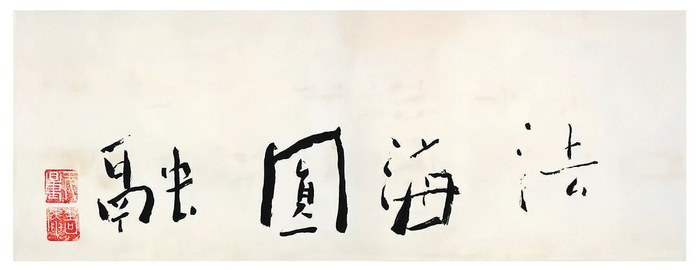 法海圓融